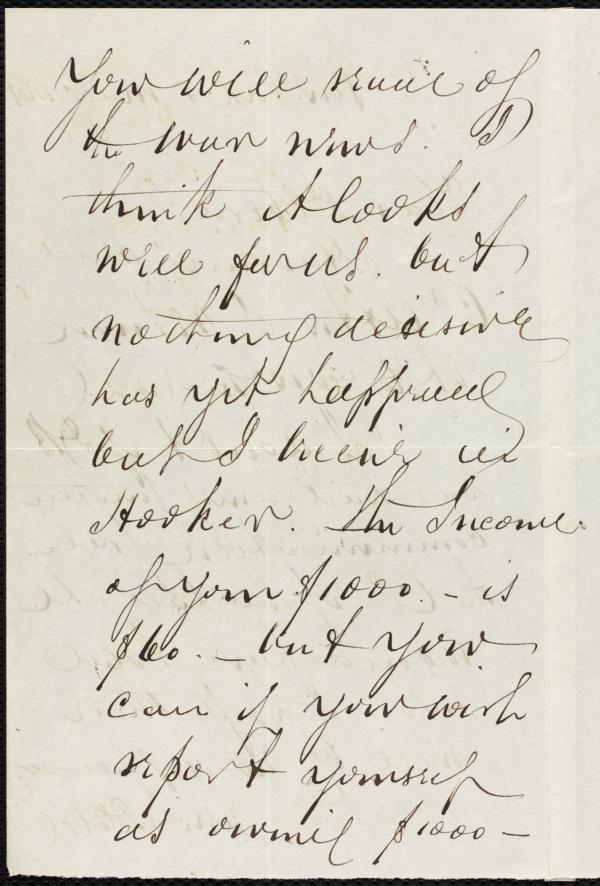 You will read of
the war news. I
think it looks
well for us. but
nothing decisive
has yet happened
but I believe in
Hooker. The Income
of your $1000. – is
$60. – but you
can if you wish
report yourself
as owning $1000 –